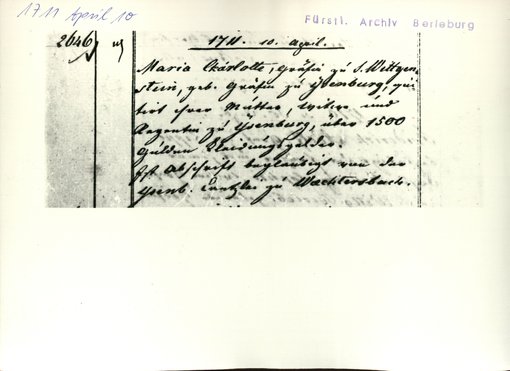 1711 April 10
Fürstl. Archiv Berleburg
2646
1711. 10. April.
Maria Charlotte, Gräfin zu S. Wittgen-
stein, geb. Gräfin zu Ysenburg, qui-
tirt ihrer Mutter, Witwe und
Regentin zu Ysenburg, über 1500
Gulden Kleidungsgelder.
Ist Abschrift beglaubigt von der
Ysenb. Canzlei zu Waechtersbach.